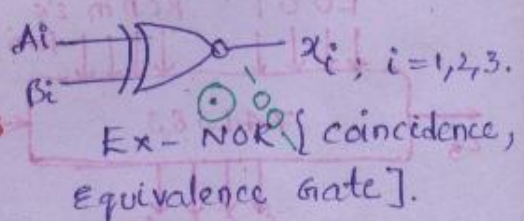 Ai
xi ; i=1,2,3.
Bi
Ex- NOR [ coincidence,
Equivalence Gate ].